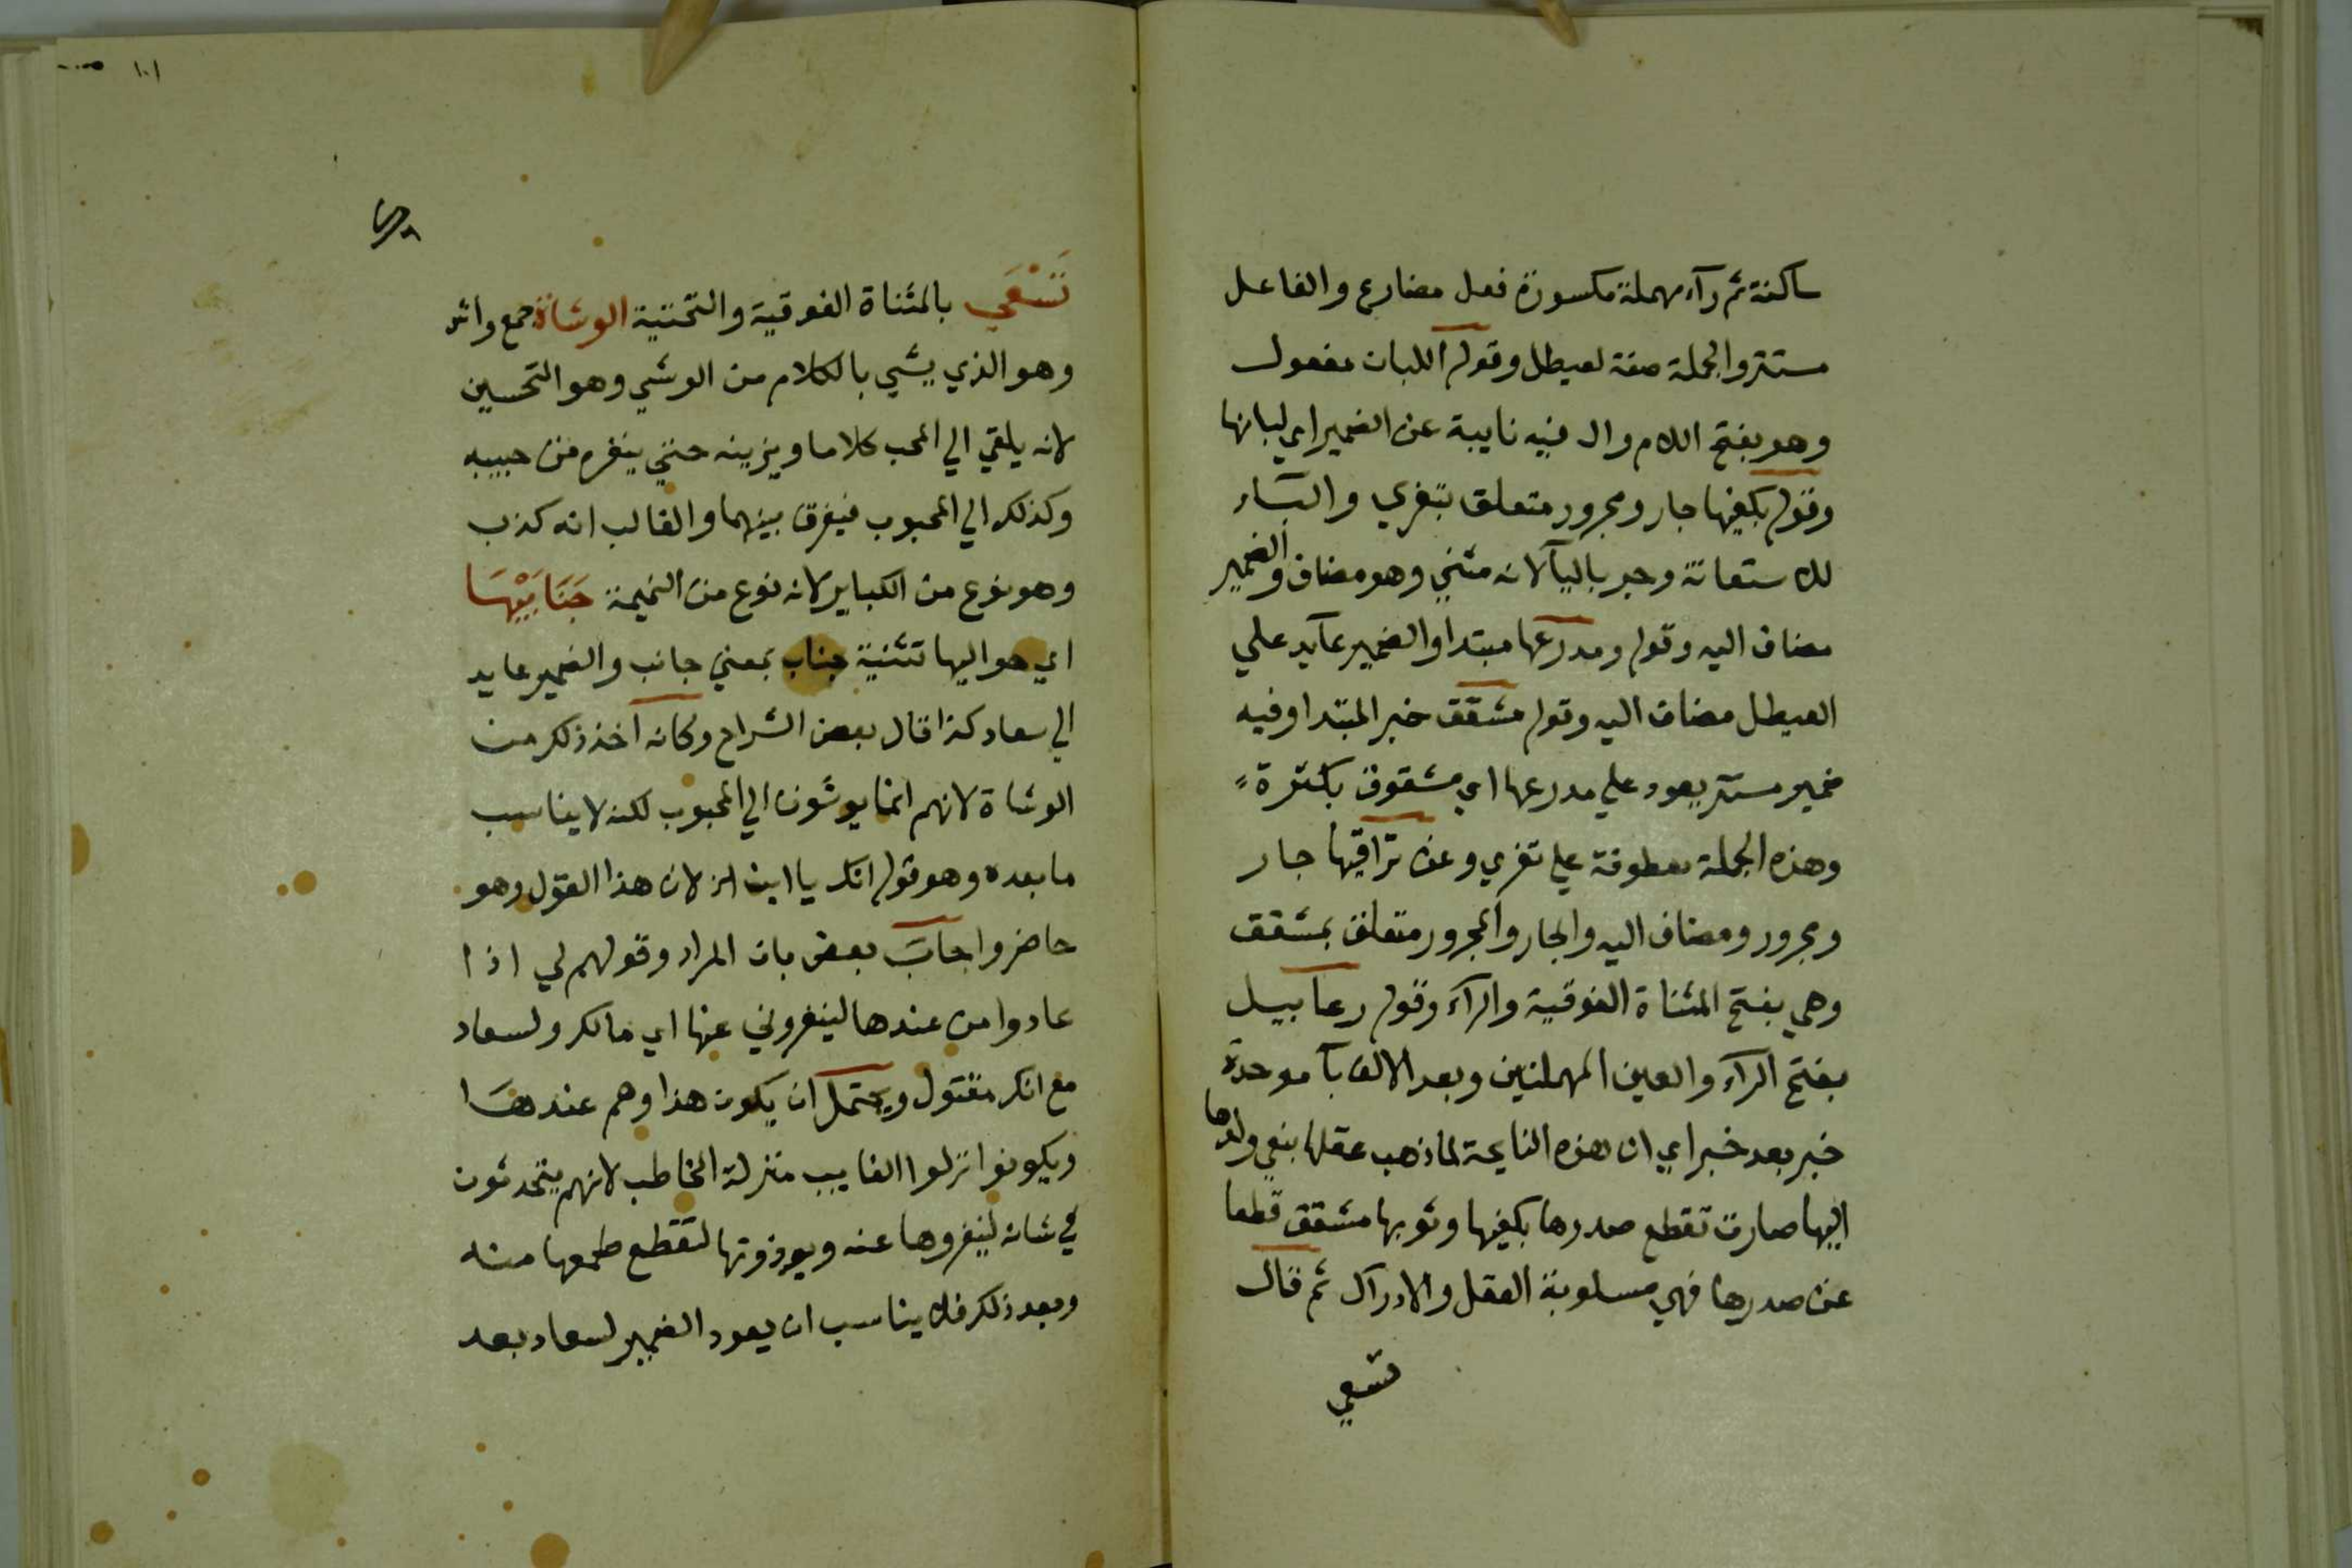 ساكنة ثم رآء مهملة مكسورة فعل مضارع والفاعل
مستتر والجملة صفة لعيطل وقوله اللبان مفعول
وهو بفتح اللام وال فيه نايبة عن الضمير اي لبانها
وقوله بكفيها جار ومجرور متعلق بتفري والبآء
للاستعانة وجر باليآ لانه مثني وهو مضاف والضمير
مضاف اليه وقوله ومدرعها مبتدا والضمير عآيد علي
العيطل مضاف اليه وقوله مشقق خبر المبتدا وفيه
ضمير مستتر يعود علي مدرعها اي مشقوق بكثرة
وهذه الجملة معطوفة علي تفري وعن تراقيها جار
ومجرور ومضاف اليه والجار والمجرور متعلق بمشقق
وهي بفتح المثناة الفوقية والرآء وقوله رعابيل
بفتح الرآء والعين المهملتين وبعد الالف بآ موحدة
خبر بعد خبر اي ان هذه النايحة لما ذهب عقلها بنعي ولدها
اليها صارت تقطع صدرها بكفيها وثوبها مشقق قطعا
عن صدرها فهي مسلوبة العقل والادراك ثم قال
تسعي
١٠١
تَسْعَي بالمثناة الفوقية والتحتية الوشاة جمع واش
وهو الذي يشي بالكلام من الوشي وهو التحسين
لانه يلقي الي المحب كلاما ويزينه حتي ينفره من حبيبه
وكذلك الي المحبوب فيفرق بينهما والغالب انه كذب
وهو نوع من الكباير لانه نوع من النميمة جَنَابَيْهَا
اي حواليها تثنية جناب بمعني جانب والضمير عايد
الي سعاد كذا قال بعض الشراح وكانه اخذ ذلك من
الوشاة لانهم انما يوشون الي المحبوب لكنه لا يناسب
ما بعده وهو قوله انك يا ابن الخ لان هذا القول وهو
حاضر واجاب بعض بان المراد وقولهم لي اذا
عادوا من عندها لينفروني عنها اي مالك ولسعاد
مع انك مقتول ويحتمل ان يكون هذا وهم عندها
ويكونوا نزلوا الغايب منزلة المخاطب لانهم يتحدثون
في شانه لينفروها عنه ويوذونها لتقطع طمعها منه
وبعد ذلك فلا يناسب ان يعود الضمير لسعاد بعد